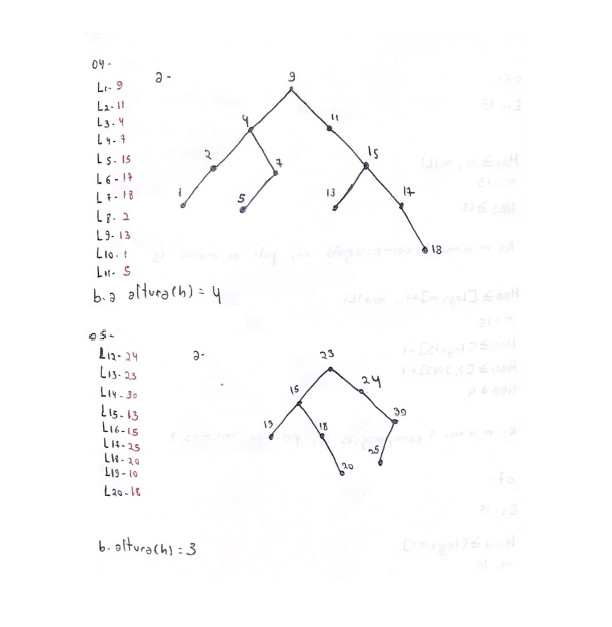 04-
a-
L1- 9
L2- 11
L3- 4
L4- 7
L5- 15
L6- 17
L7- 18
L8- 2
L9- 13
L10- 1
L11- 5
9
4
11
2
7
15
1
5
13
17
18
b.a altura(h) = 4
05-
a-
L12- 24
L13- 23
L14- 30
L15- 13
L16- 15
L17- 25
L18- 20
L19- 10
L20- 18
23
15
24
13
18
30
20
25
b. altura(h) = 3